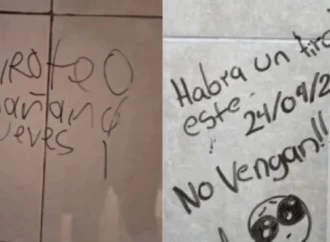 IROteO
añana
ueves
Habra un tiro
este
24/04/2
No Vengan!!